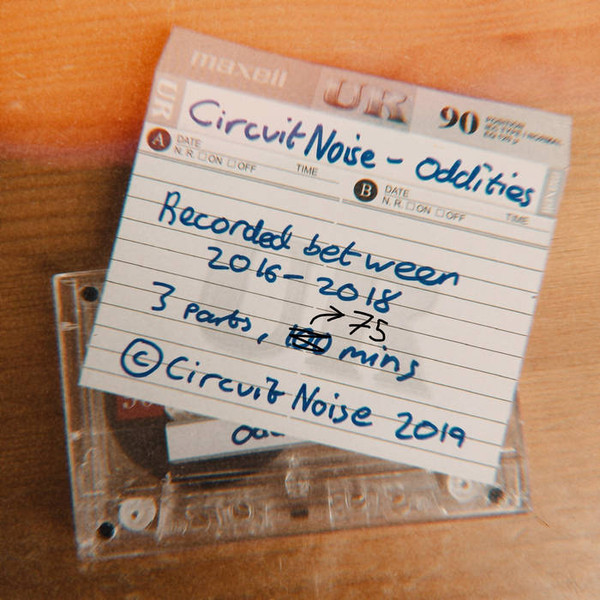 maxell
UR 90 POSITION
IEC TYPE I · NORMAL
UR
Circuit Noise - Oddities
A DATE
N. R. □ ON □ OFF TIME
B DATE
N. R. □ ON □ OFF TIME
Recorded between
2016 - 2018
→ 75
3 parts, mins
© Circuit Noise 2019